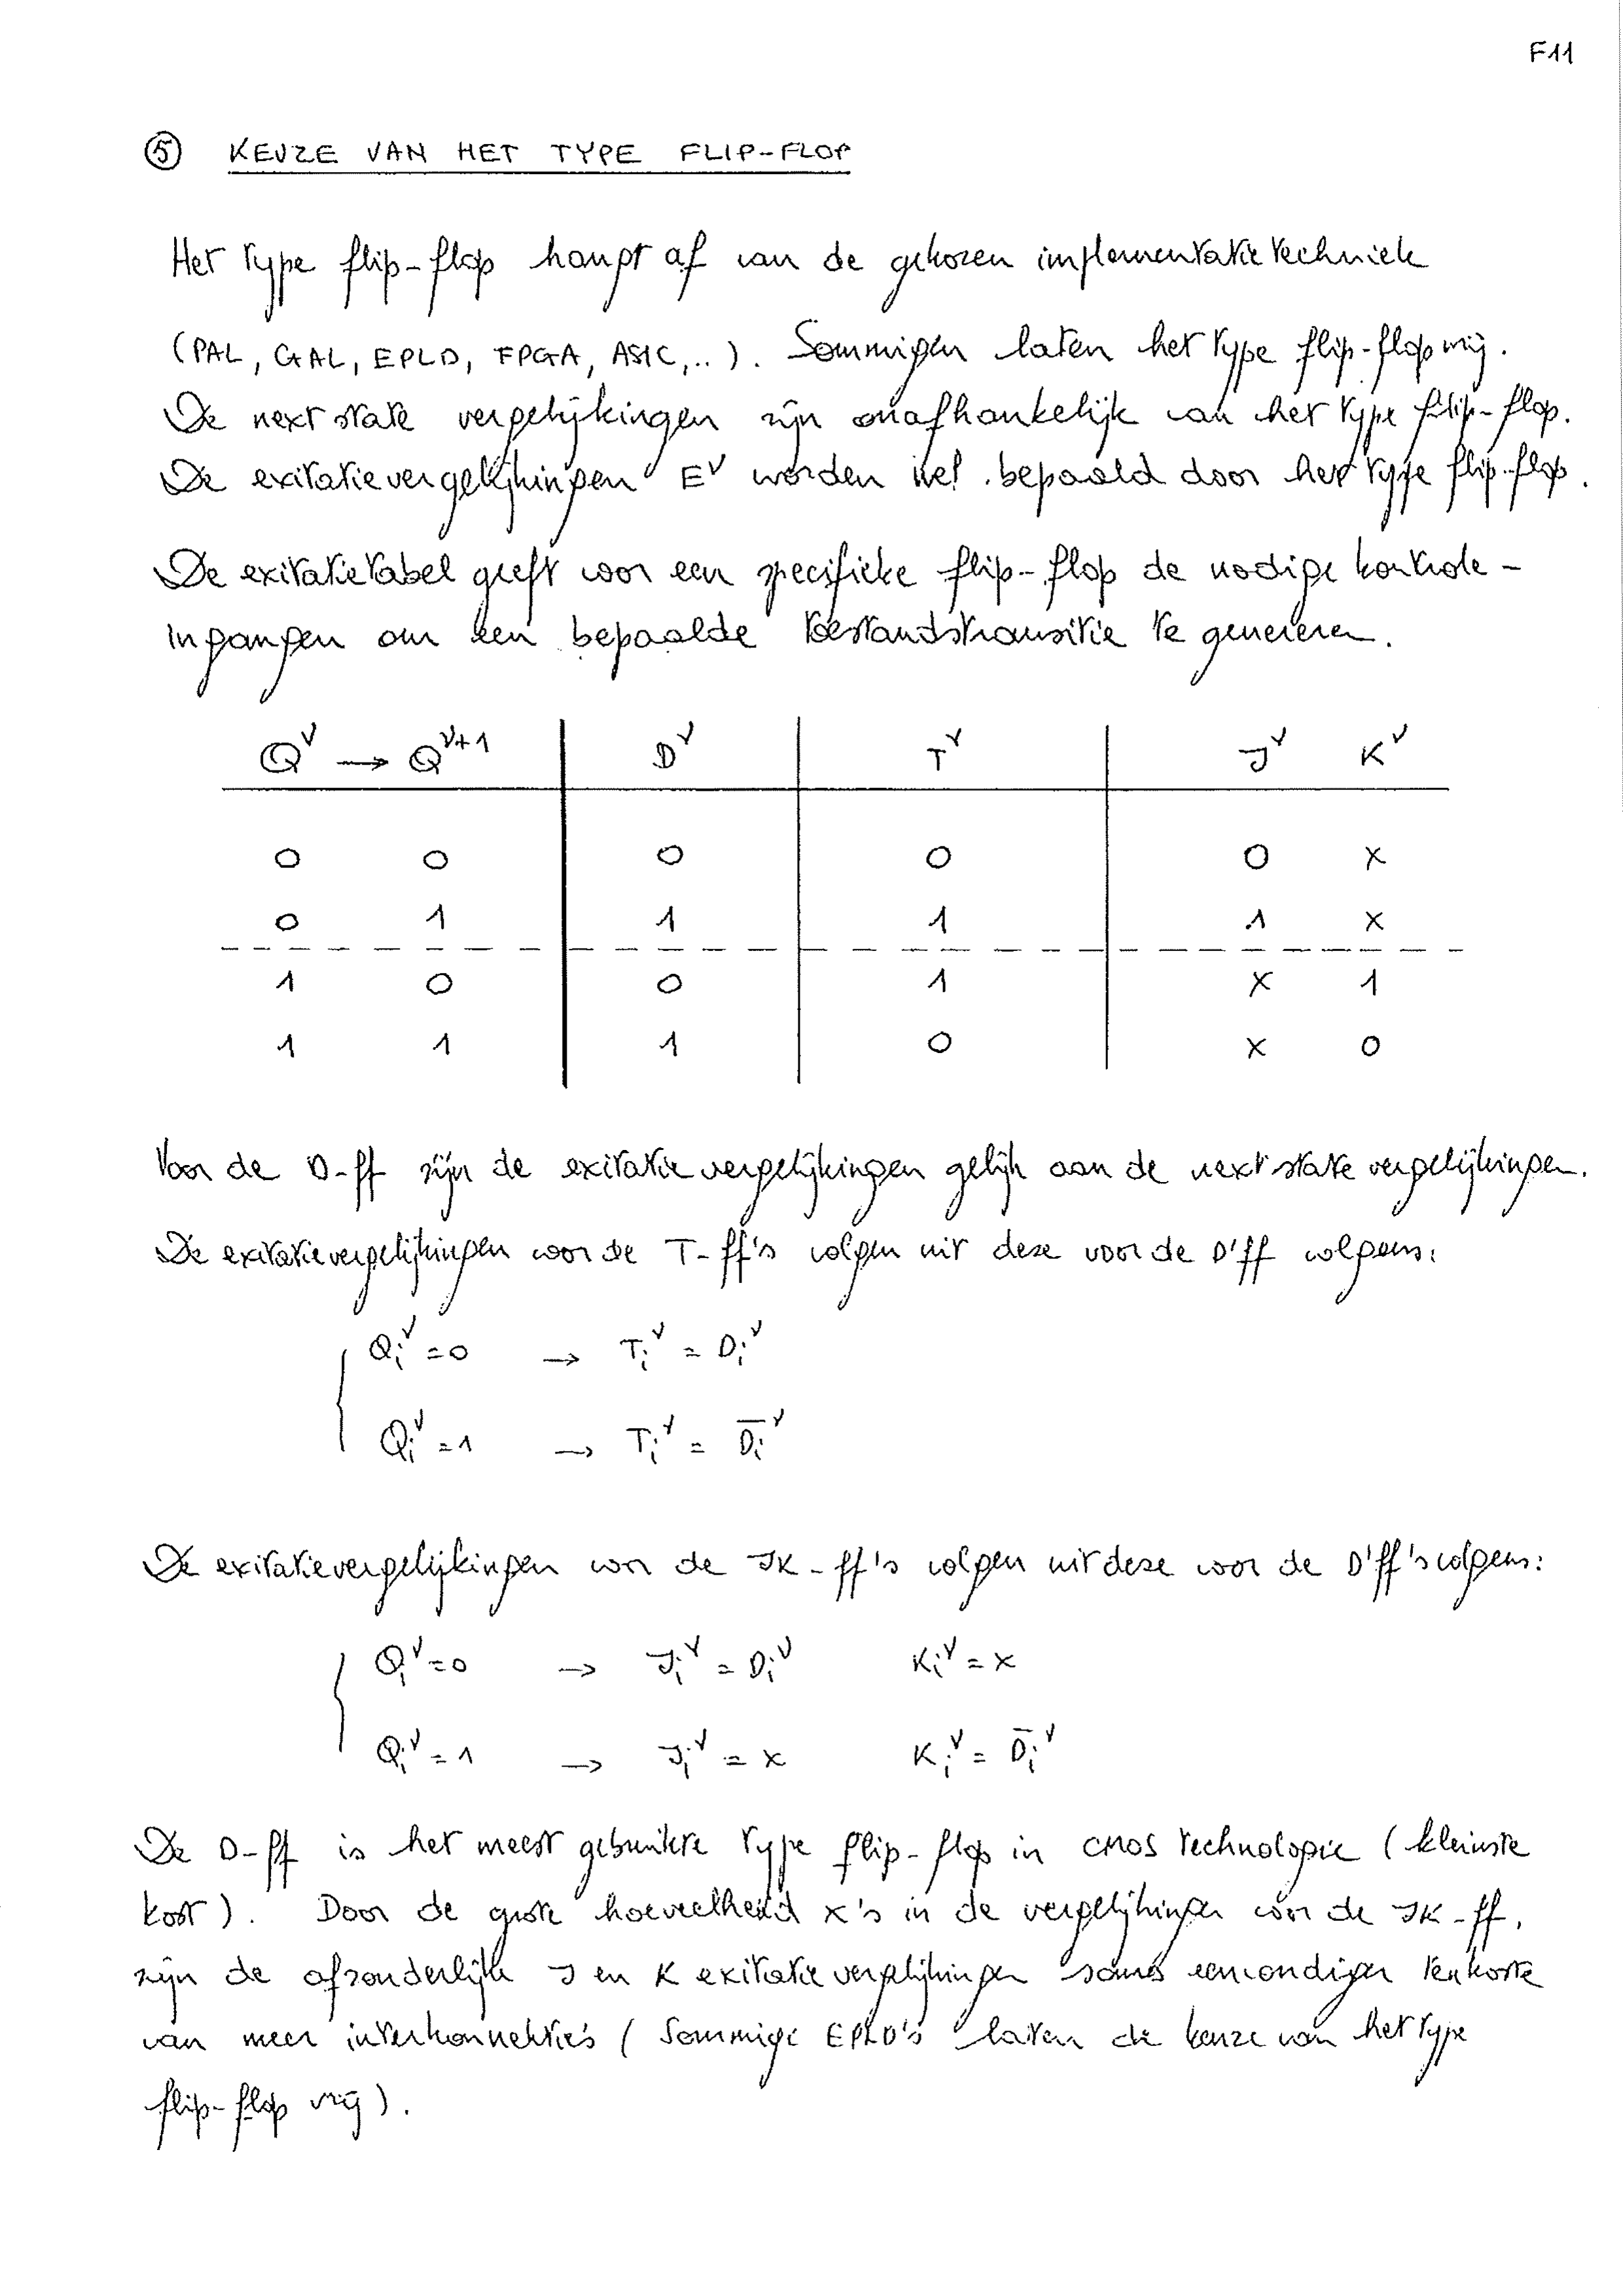 F11
⑤ KEUZE VAN HET TYPE FLIP-FLOP
Het type flip-flop hangt af van de gekozen implementatietechniek
(PAL, GAL, EPLD, FPGA, ASIC,..). Sommigen laten het type flip-flop vrij.
De next state vergelijkingen zijn onafhankelijk van het type flip-flop.
De exitatievergelijkingen E^ν worden wel bepaald door het type flip-flop.
De exitatietabel geeft voor een specifieke flip-flop de nodige kontrole-
ingangen om een bepaalde toestandstransitie te genereren.
Q^ν → Q^ν+1 D^ν T^ν J^ν K^ν
0 0 0 0 0 x
0 1 1 1 1 x
1 0 0 1 x 1
1 1 1 0 x 0
Voor de D-ff zijn de exitatievergelijkingen gelijk aan de next state vergelijkingen.
De exitatievergelijkingen voor de T-ff's volgen uit deze voor de D'ff volgens:
Q_i^ν = 0 → T_i^ν = D_i^ν
Q_i^ν = 1 → T_i^ν = D̅_i^ν
De exitatievergelijkingen voor de JK-ff's volgen uit deze voor de D'ff's volgens:
Q_i^ν = 0 → J_i^ν = D_i^ν K_i^ν = x
Q_i^ν = 1 → J_i^ν = x K_i^ν = D̅_i^ν
De D-ff is het meest gebruikte type flip-flop in CMOS technologie (kleinste
kost). Door de grote hoeveelheid x's in de vergelijkingen voor de JK-ff,
zijn de afzonderlijke J en K exitatievergelijkingen soms eenvoudiger ten koste
van meer interkonnekties (Sommige EPLD's laten de keuze van het type
flip-flop vrij).